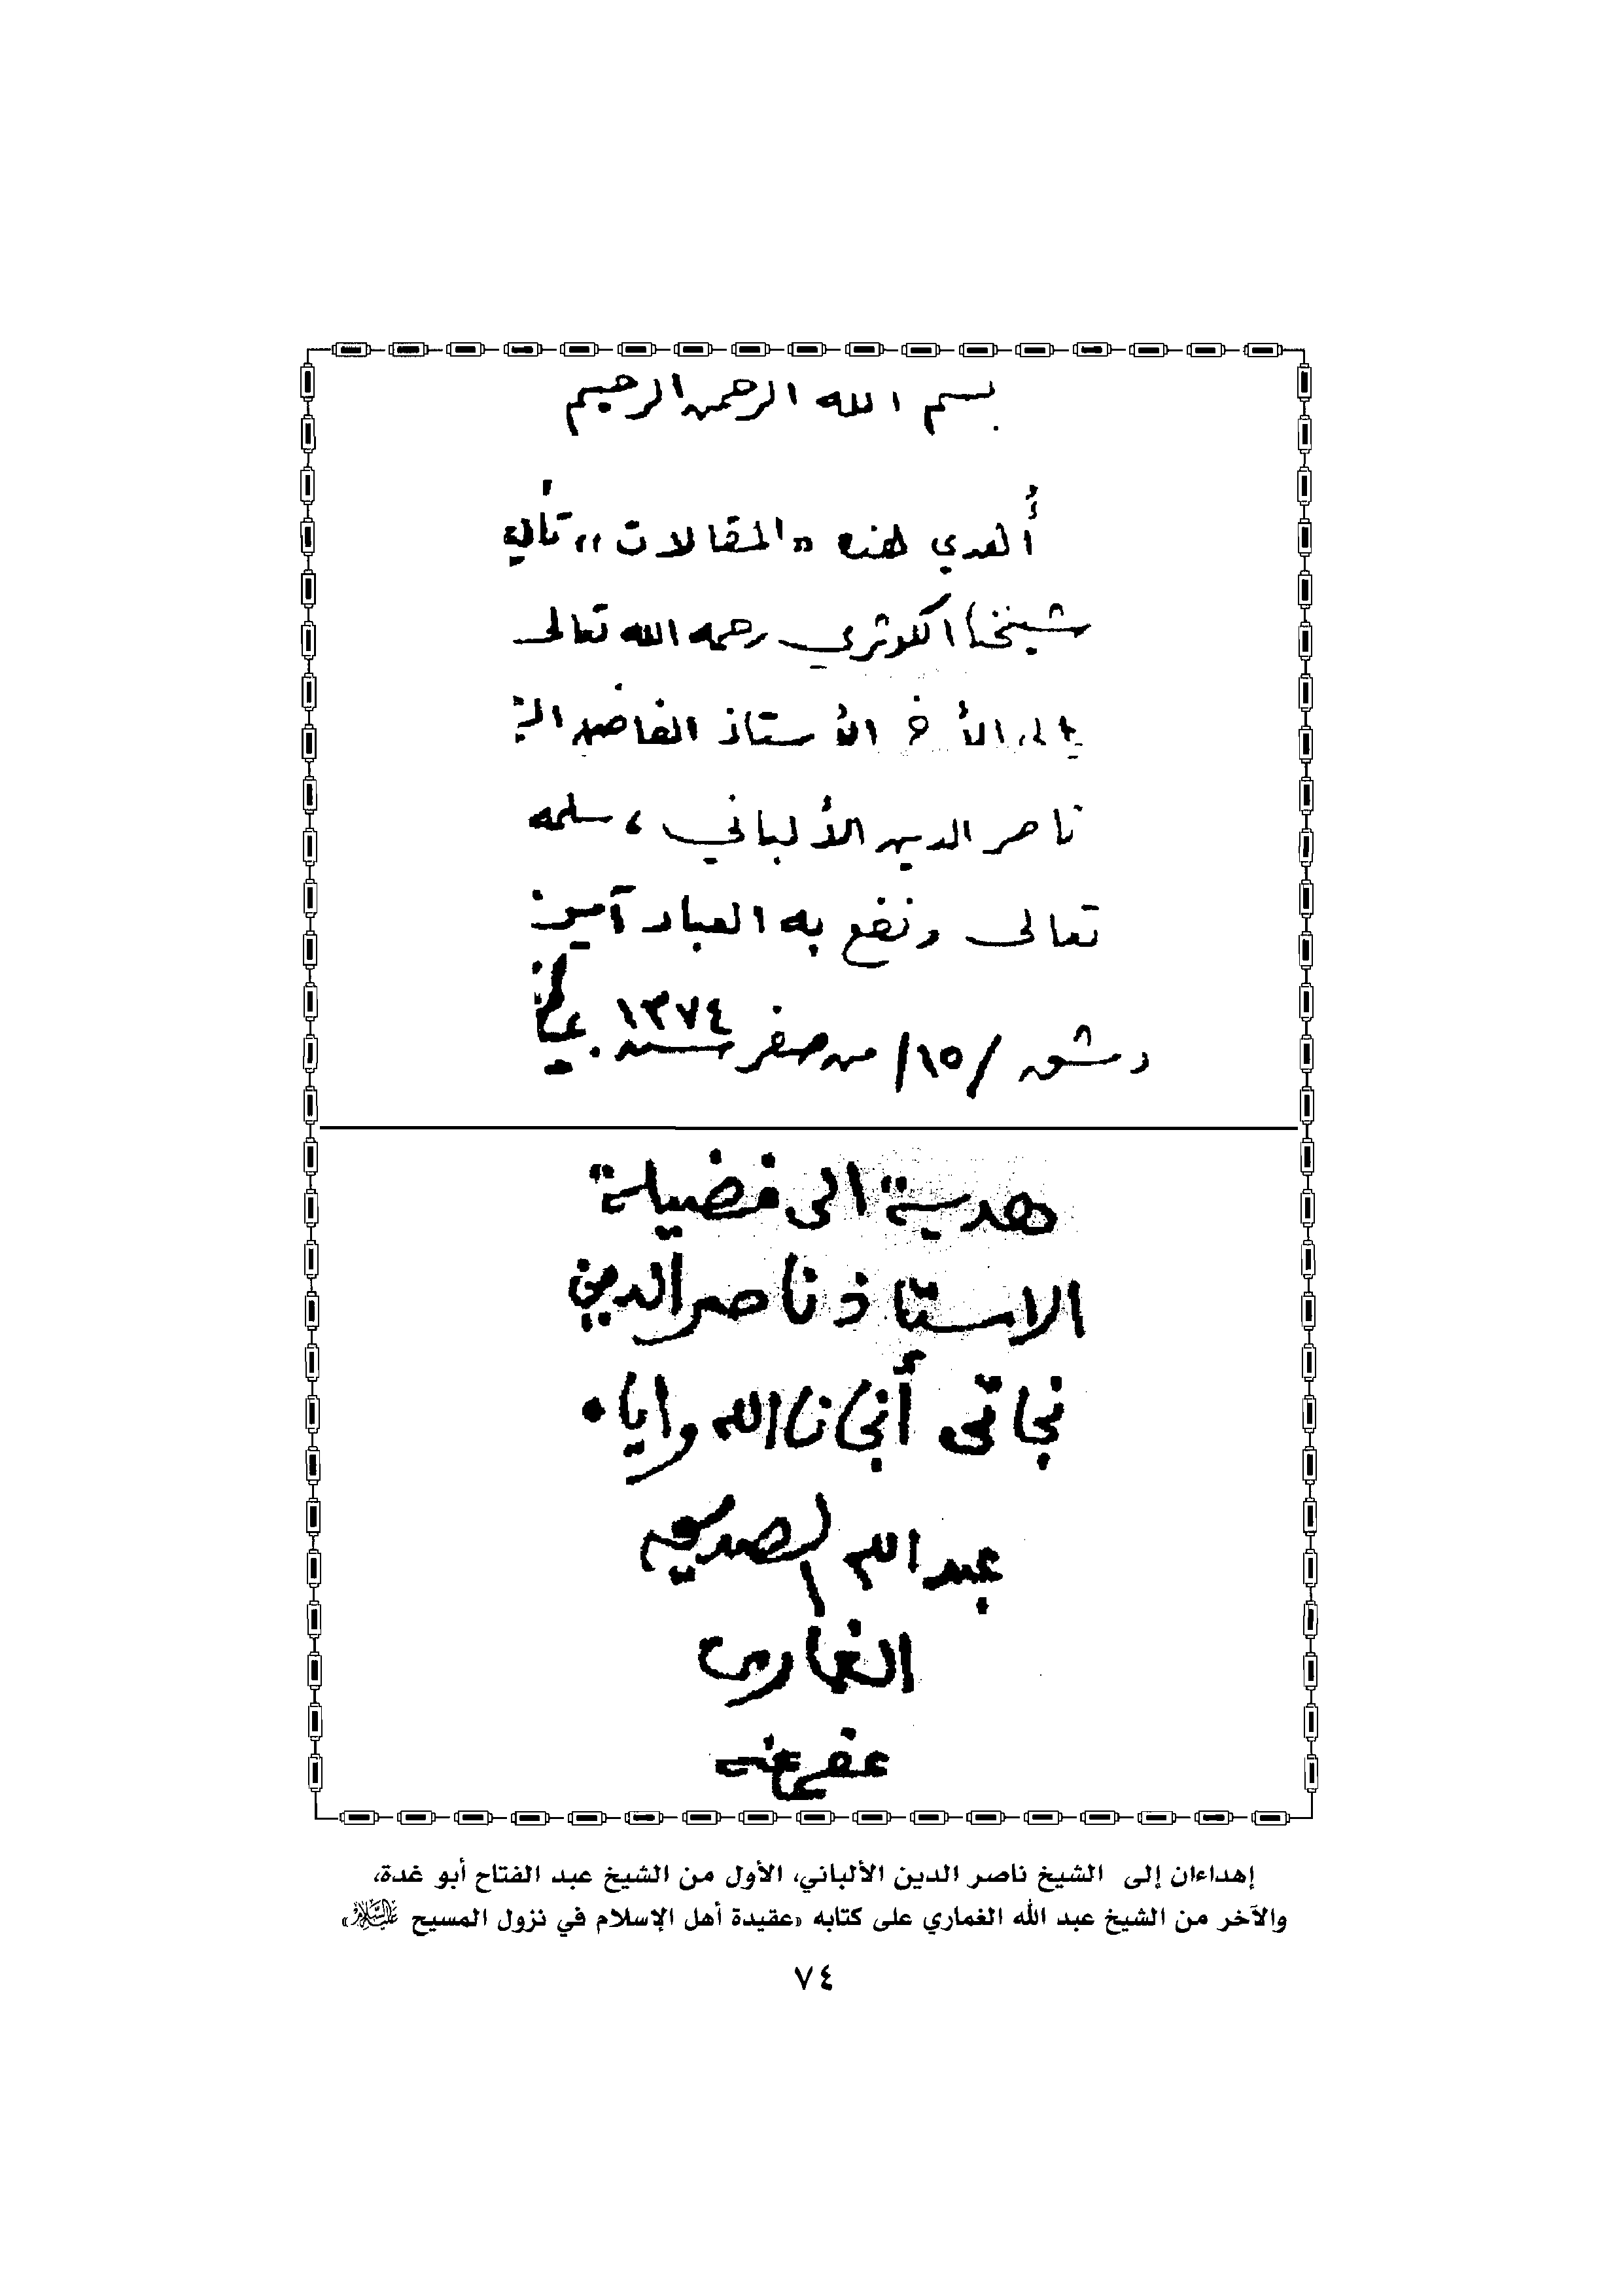 بسم الله الرحمن الرحيم
أُهدي هذه «المقالات» تأليف
شيخنا الكوثري رحمه الله تعالى
إلى الأخ الأستاذ الفاضل
ناصر الدين الألباني، سلمه
تعالى ونفع به العباد آمين
دمشق /١٥/ من صفر سنة ١٣٧٤
هدية الى فضيلة
الاستاذ ناصر الدين
نجاتى أنجانا الله واياه
عبد الله الصديق
الغمارى
عفى عنه
إهداءان إلى الشيخ ناصر الدين الألباني، الأول من الشيخ عبد الفتاح أبو غدة،
والآخر من الشيخ عبد الله الغماري على كتابه «عقيدة أهل الإسلام في نزول المسيح عليه السلام»
٧٤